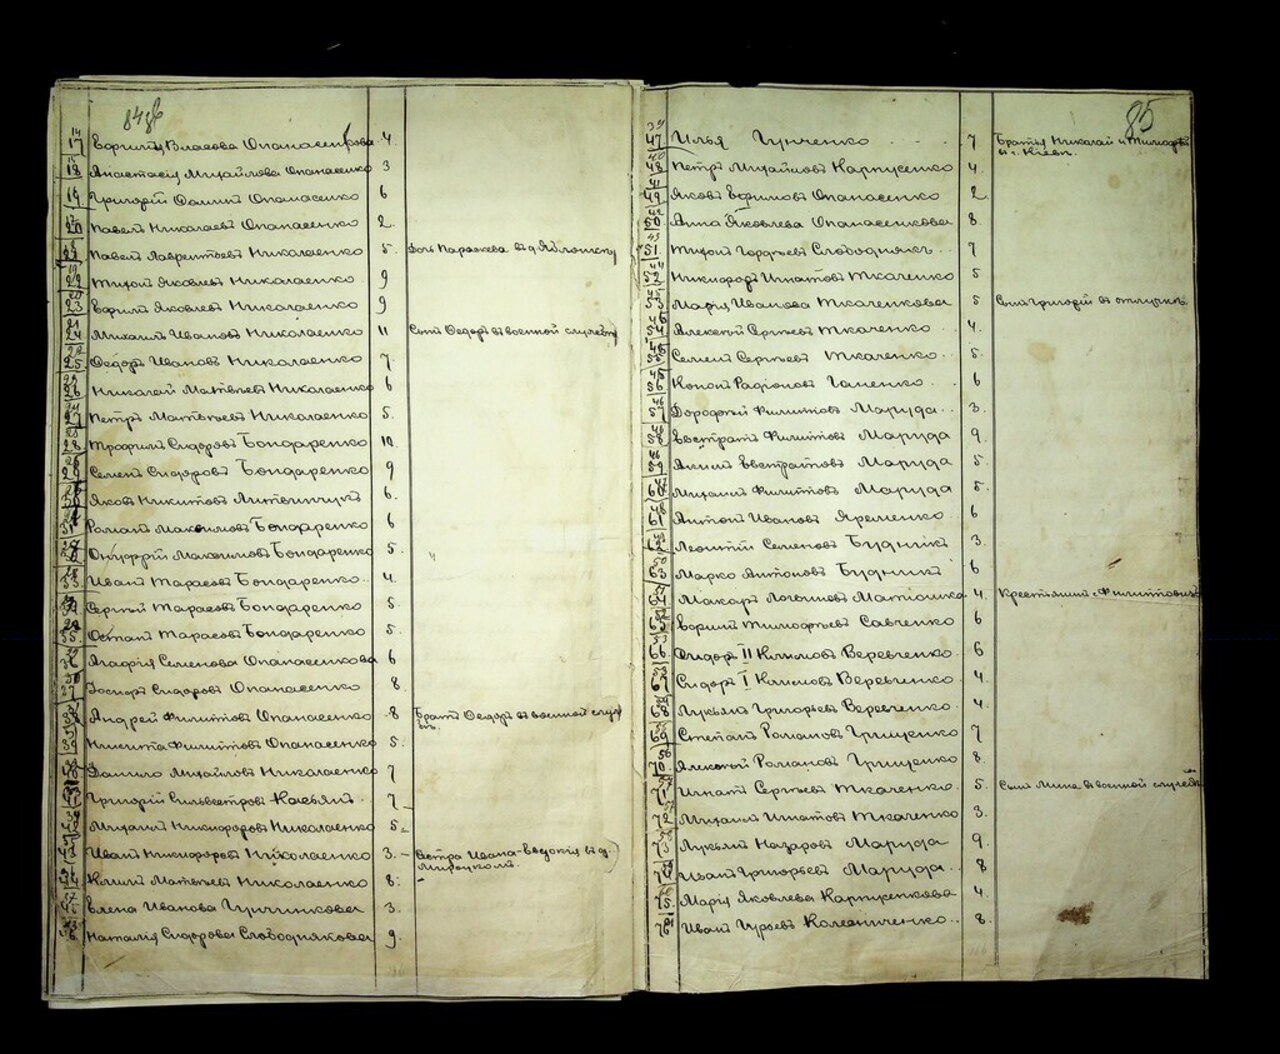 84 об
17 Евфимія Власова Опанасенкова 4
18 Анастасія Михайлова Опанасенко 3
19 Григорій Опанасенко 6
20 Павелъ Николаевъ Опанасенко 2
21 Павелъ Лаврентьевъ Николаенко 5. Дочь Параскева въ д. Яблонску
22 Тихон Яковлевъ Николаенко 9
23 Ефимъ Яковлевъ Николаенко 9
24 Михаилъ Ивановъ Николаенко 11 Сынъ Федоръ въ военной службѣ
25 Федоръ Ивановъ Николаенко 7.
26 Николай Матвѣевъ Николаенко 6
27 Петръ Матвѣевъ Николаенко 5.
28 Трофимъ Сидоровъ Бондаренко 10.
29 Семенъ Сидоровъ Бондаренко 9
30 Яковъ Никитовъ Литвинчукъ 6.
31 Романъ Максимовъ Бондаренко 6
Онуфрій Максимовъ Бондаренко 5.
33 Иванъ Тарасовъ Бондаренко 4.
34 Сергѣй Тарасовъ Бондаренко 5.
35. Остапъ Тарасовъ Бондаренко 5.
36 Агафія Семенова Опанасенкова 6
37 Іосифъ Сидоровъ Опанасенко 8.
Андрей Филиповъ Опанасенко 8 Братъ Федоръ въ военной служ
бѣ.
Никита Филиповъ Опанасенко 5.
Данило Михайловъ Николаенко 7
Григорій Сильвестровъ Касьянъ 7
Михаилъ Никифоровъ Николаенко 5.
Иванъ Никифоровъ Николаенко 3. Сестра Ивана въ д.
Климъ Матвѣевъ Николаенко 8.
Елена Иванова Гунченкова 3.
Наталія Сидорова Слободнякова 9.
85
47 Илья Гунченко 7 Братья Николай и Тимофѣй
въ г. Кіевѣ.
48 Петръ Михайловъ Карпусенко 4.
49 Яковъ Ефимовъ Опанасенко 2
50 Анна Яковлева Опанасенкова 8.
51. Тихон Гордѣевъ Слободнякъ 7
52 Никифоръ Игнатовъ Ткаченко 5
53 Марія Иванова Ткаченкова 5 Сынъ Григорій въ отлучкѣ
54 Алексѣй Сергѣевъ Ткаченко 4.
55 Семенъ Сергѣевъ Ткаченко 5.
56 Кононъ Радіоновъ Гапенко 6
57 Дорофѣй Филиповъ Маруда 3.
58 Евстратъ Филиповъ Маруда 9.
59 Акимъ Евстратовъ Маруда 5.
60 Михаилъ Филиповъ Маруда 5.
61 Антонъ Ивановъ Яременко 6
62 Леонтій Семеновъ Будникъ 3.
63 Марко Антоновъ Будникъ 6
64 Макаръ Логвиновъ Матюшко 4. Крестьянинъ с. Филиповичъ
65 Ефимъ Тимофѣевъ Савченко 6
66. Сидоръ II Климовъ Веревченко 6
67 Сидоръ I Климовъ Веревченко 4.
68 Лукьянъ Григорьевъ Веревченко 4.
69 Степанъ Романовъ Грищенко 7
70. Алексѣй Романовъ Грищенко 8.
71 Игнатъ Сергѣевъ Ткаченко 5. Сынъ Мина въ военной службѣ
72 Михаилъ Игнатовъ Ткаченко 3.
73 Лукьянъ Назаровъ Маруда 9.
74 Иванъ Григорьевъ Маруда 8
75. Марія Яковлева Карпусенкова 4.
76 Иванъ Гурьевъ Колесниченко 8.